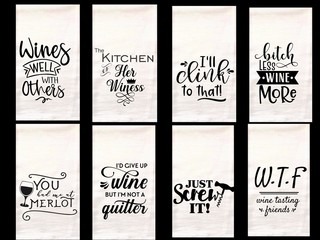 Wines
WELL
WITH
Others
The
KITCHEN
OF Her
Winess
I'll
clink
to that!
bitch
LESS
WINE
MORE
YOU
had me at
MERLOT
I'D GIVE UP
wine
BUT I'M NOT A
quitter
JUST
Screw
IT!
W.T.F
wine tasting
friends